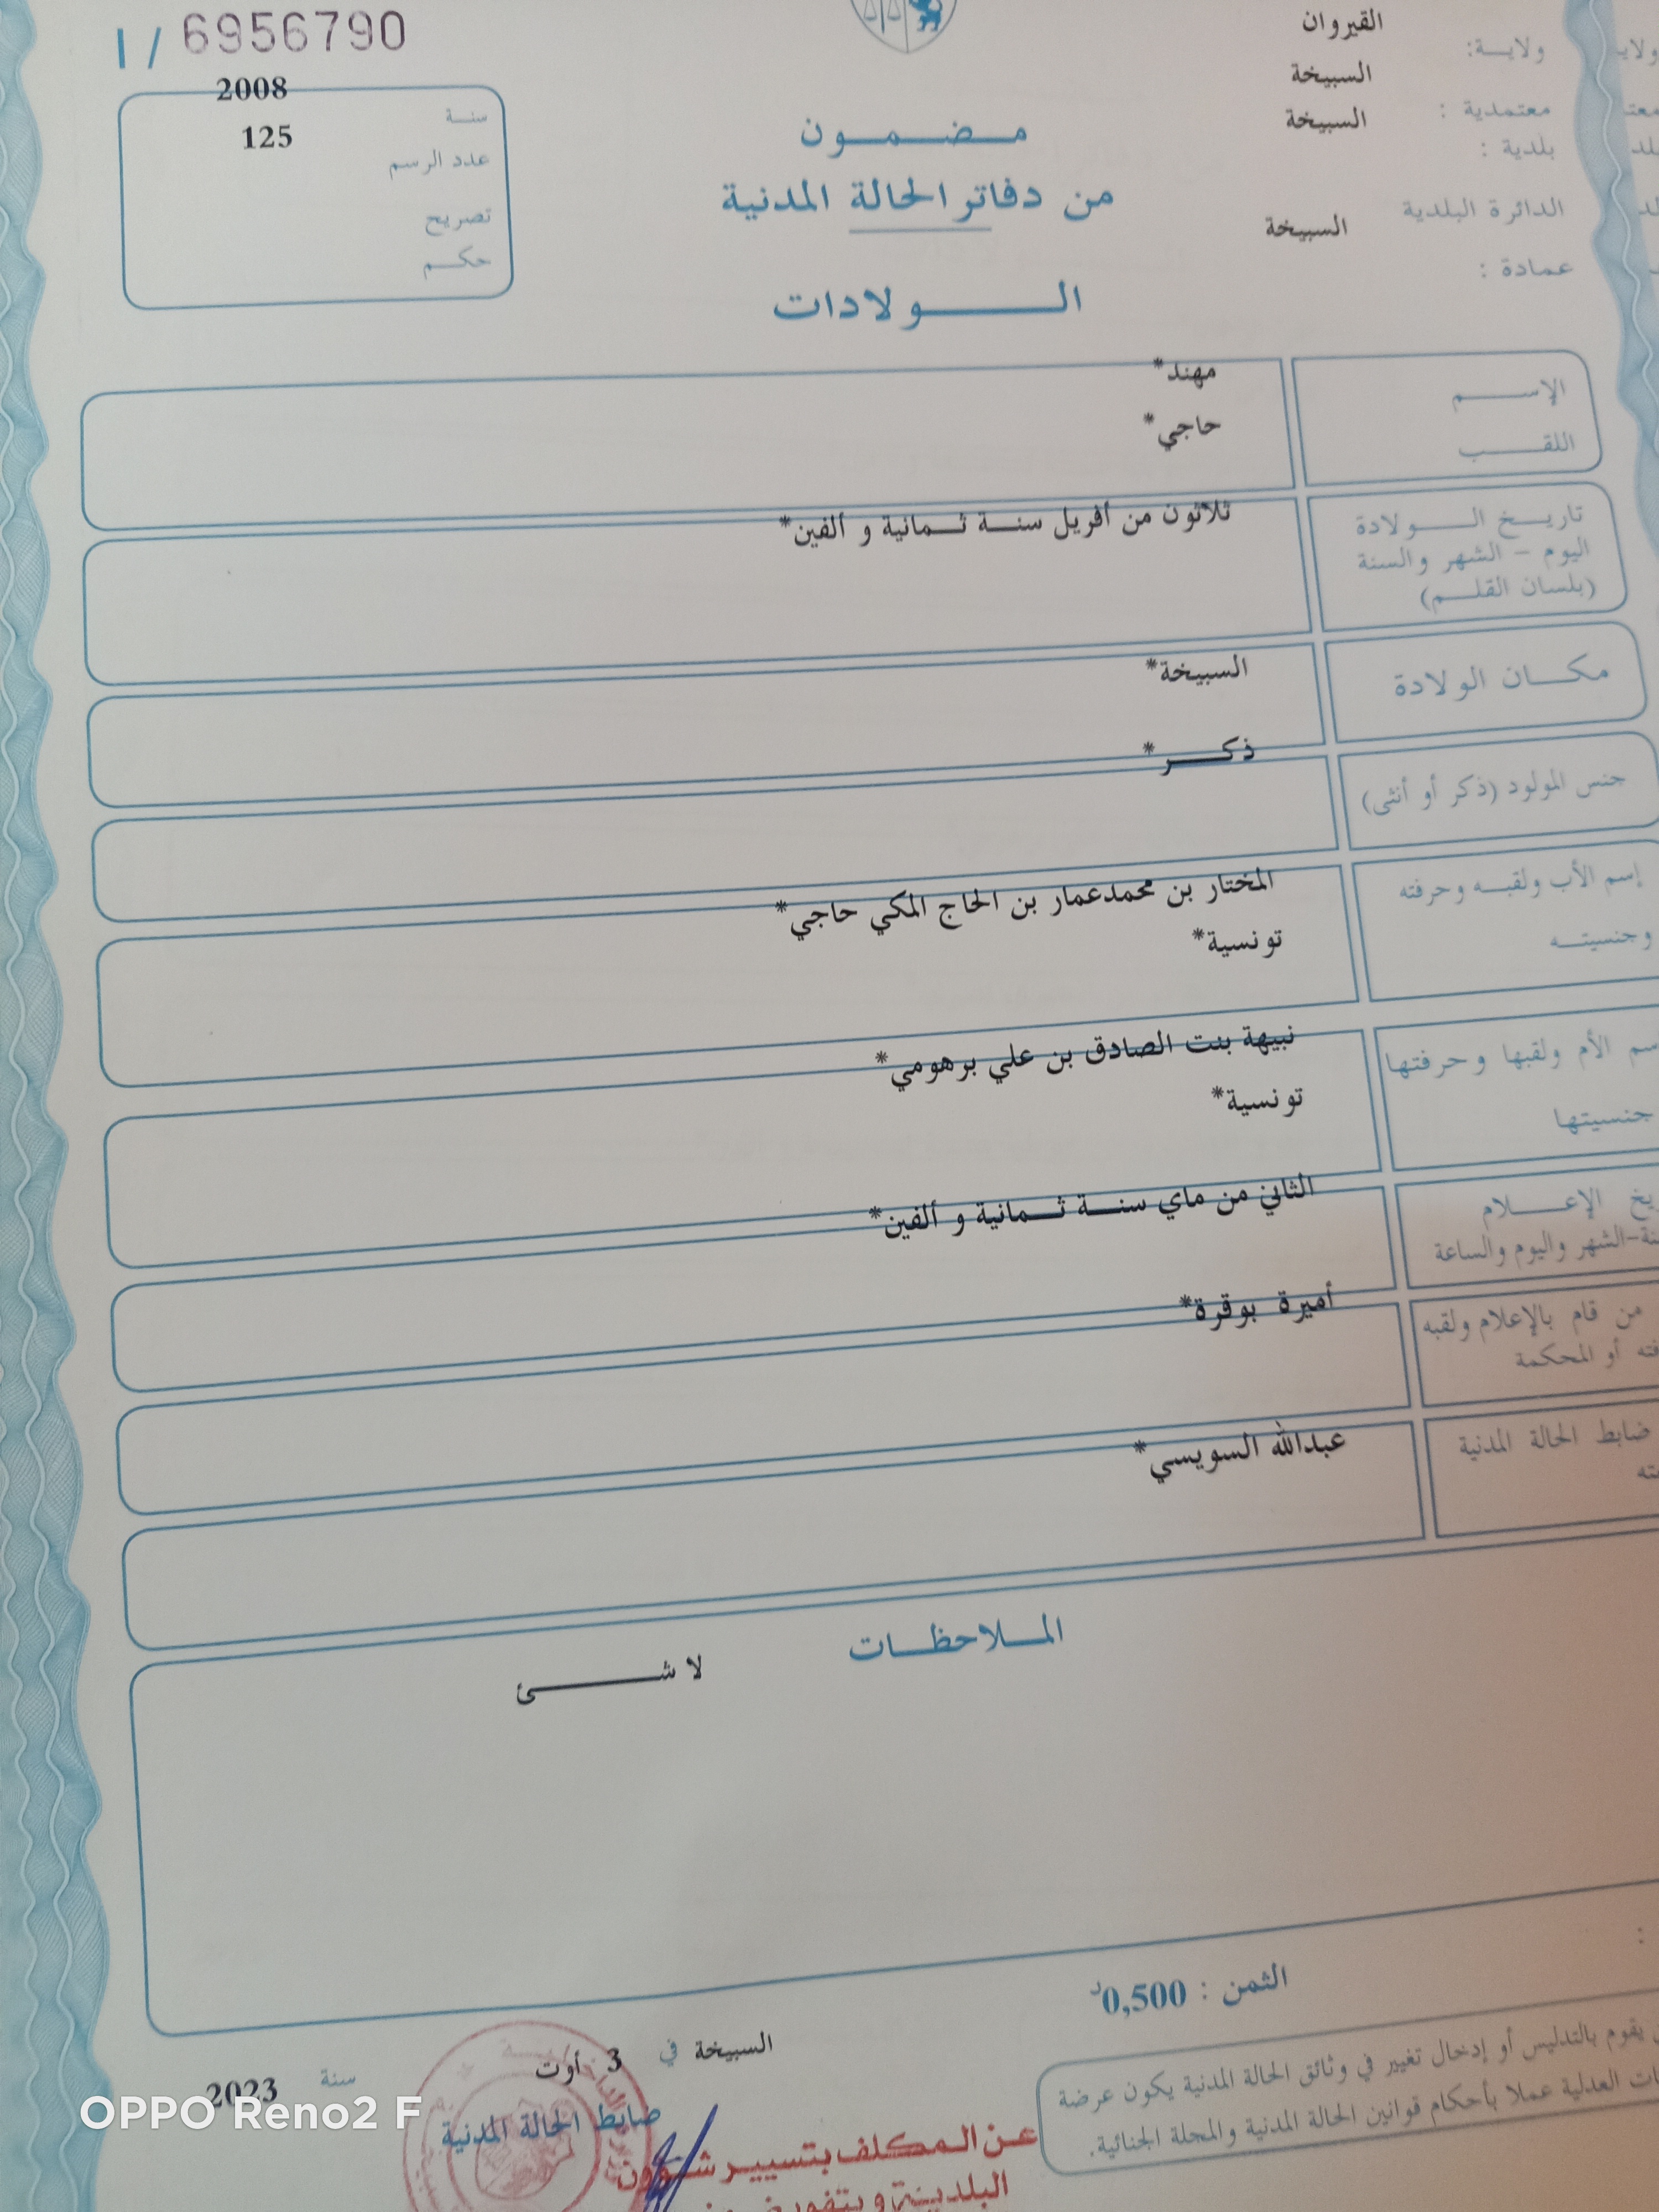 I / 6956790
القيروان
ولاية:
السبيخة
معتمدية :
السبيخة
بلدية :
الدائرة البلدية
السبيخة
عمادة :
2008
سنة
125
عدد الرسم
تصريح
حكم
مضمون
من دفاتر الحالة المدنية
الولادات
الإسم
مهند*
اللقب
حاجي*
تاريخ الولادة
اليوم - الشهر والسنة
(بلسان القلم)
ثلاثون من أفريل سنة ثمانية و ألفين*
مكان الولادة
السبيخة*
جنس المولود (ذكر أو أنثى)
ذكر*
إسم الأب ولقبه وحرفته
وجنسيته
المختار بن محمدعمار بن الحاج المكي حاجي*
تونسية*
سم الأم ولقبها وحرفتها
جنسيتها
نبيهة بنت الصادق بن علي برهومي*
تونسية*
يخ الإعلام
نة-الشهر واليوم والساعة
الثاني من ماي سنة ثمانية و ألفين*
من قام بالإعلام ولقبه
فته أو المحكمة
أميرة بوقرة*
ضابط الحالة المدنية
عبدالله السويسي*
الملاحظات
لا شئ
الثمن : 0,500د
السبيخة في 3 أوت سنة 2023
ضابط الحالة المدنية
عن المكلف بتسيير شؤون
البلدية و بتفويض
يقوم بالتدليس أو إدخال تغيير في وثائق الحالة المدنية يكون عرضة
ات العدلية عملا بأحكام قوانين الحالة المدنية والمجلة الجنائية.
OPPO Reno2 F